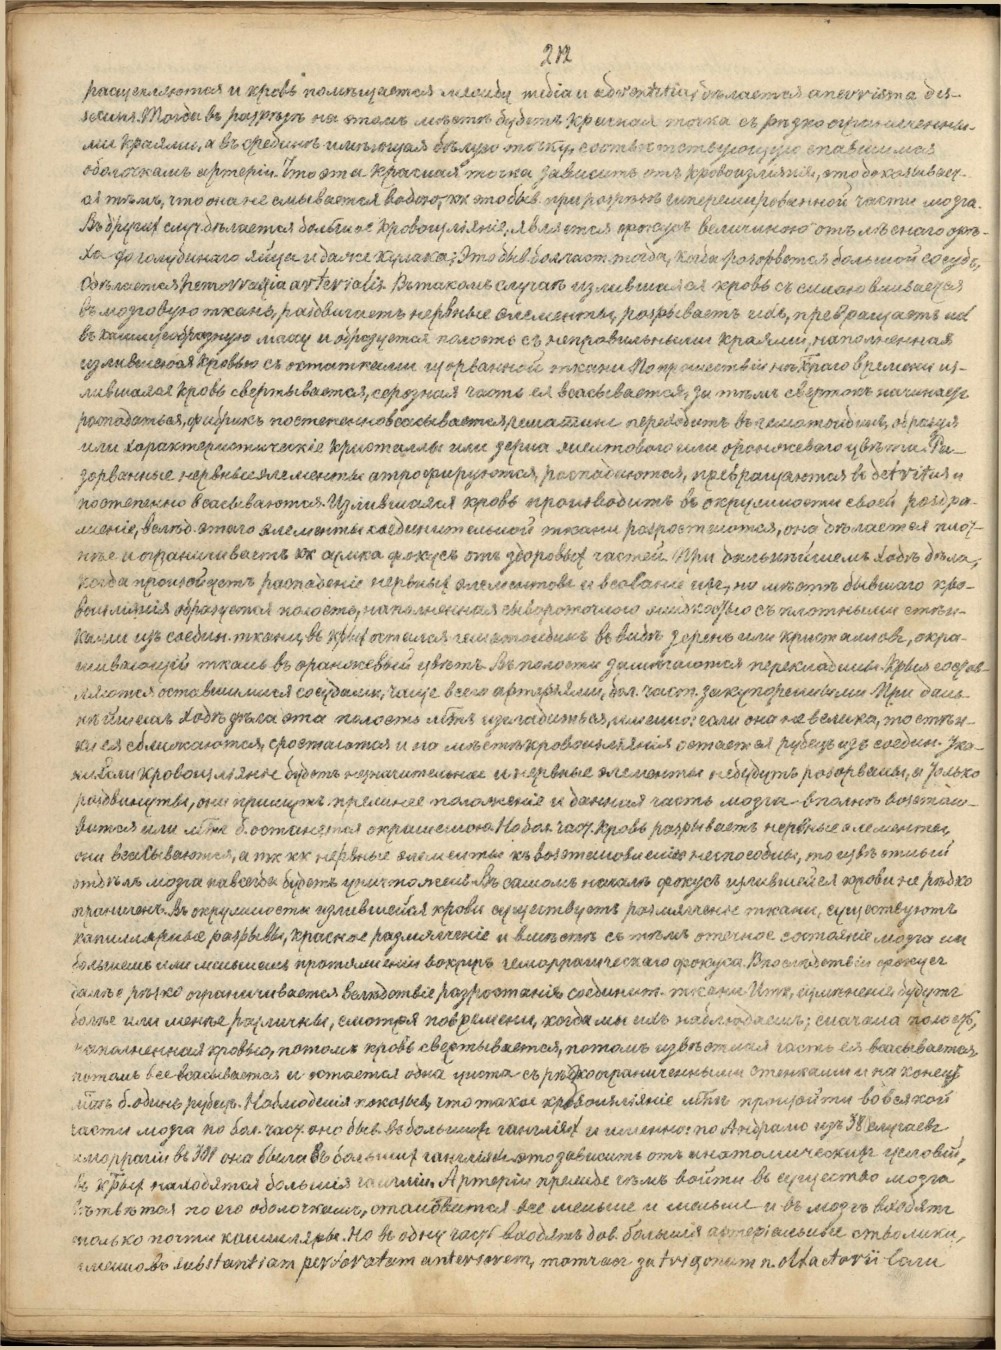 212
расщепляются и кровь помѣщается между media и adventitia, дѣлается anevrisma dis-
secans. Тогда въ разрѣзѣ на этомъ мѣстѣ будетъ красная точка съ рѣзко ограниченны-
ми краями, а въ срединѣ имѣющая бѣлую точку, соотвѣтствующую спавшимся
оболочкамъ артеріи. Что эта красная точка зависитъ отъ кровоизліянія, это доказывает-
ся тѣмъ, что она не смывается водою, кк это быв. при разрѣзѣ гиперемированной части мозга.
Въ другихъ случ. дѣлается большое кровоизліяніе, является фокусъ величиною отъ лѣснаго орѣ-
ха до голубинаго яйца и даже кулака; Это быв. бол. част. тогда, когда разорвется большой сосудъ,
сдѣлается hemorragia arterialis. Въ такомъ случаѣ излившаяся кровь съ силою вливается
въ мозговую ткань, раздвигаетъ нервные элементы, разрываетъ ихъ, превращаетъ их
въ кашицеобразную массу и образуется полость съ неправильными краями, наполненная
излившеюся кровью съ остатками изорванной ткани. По прошествіи нѣкраго времени из-
лившаяся кровь свертывается, серозная часть ея всасывается, за тѣмъ свертокъ начинаетъ
распадаться, фибринъ постепенно всасывается, гематинъ переходитъ въ гематоидинъ, образуя
или характеристическіе кристаллы или зерна желтоваго или оранжеваго цвѣта. Ра-
зорванные нервные элементы атрофируются, распадаются, превращаются въ detritus и
постепенно всасываются. Излившаяся кровь производитъ въ окружности своей раздра-
женіе, вслѣд. этого элементы соединительной ткани разростаются, она дѣлается плот-
нѣе и ограничиваетъ кк апика фокусъ отъ здоровыхъ частей. При дальнѣйшемъ ходѣ дѣла,
когда произойдетъ распаденіе нервныхъ элементовъ и всасываніе ихъ, на мѣстѣ бывшаго кро-
воизліянія образуется полость, наполненная сывороточною жидкостью съ плотными стѣн-
ками изъ соедин. ткани, въ крыхъ остался гематоидинъ въ видѣ зеренъ или кристалловъ, окра-
шивающій ткань въ оранжевый цвѣтъ. Въ полости замѣчаются перекладины, крыя состав-
ляются оставшимися сосудами, чаще всего артеріями, бол. част. закупоренными. При даль-
нѣйшемъ ходѣ дѣла эта полость мтъ изгладиться, именно: если она не велика, то стѣн-
ки ея сближаются, сростаются и на мѣстѣ кровоизліянія остается рубецъ изъ соедин. тка-
ни. Если кровоизліяніе будетъ незначительное и нервные элементы не будутъ разорваны, а только
раздвинуты, они примутъ прежнее положеніе и данная часть мозга вполнѣ возстано-
вится или мтъ б. останется окрашенною. Но бол. част. кровь разрываетъ нервные элементы,
они всасываются, а тк кк нервные элементы къ возстановленію неспособны, то извѣстный
отдѣлъ мозга навсегда будетъ уничтоженъ. Въ самомъ началѣ фокусъ излившейся крови не рѣзко
ограниченъ. Въ окружности излившейся крови существуетъ размягченіе ткани, существуютъ
капиллярные разрывы, красное размягченіе и вмѣстѣ съ тѣмъ отечное состояніе мозга на
большемъ или меньшемъ протяженіи вокругъ геморрагическаго фокуса. Впослѣдствіи фокусъ
далѣе рѣзко ограничивается вслѣдствіе разростанія соединит. ткани. Итк, измѣненія будутъ
болѣе или менѣе различны, смотря по времени, когда мы ихъ наблюдаемъ; сначала полость,
наполненная кровью, потомъ кровь свертывается, потомъ извѣстная часть ея всасывается,
потомъ все всасывается и остается одна циста съ рѣзко ограниченными стенками и на конецъ
мтъ б. одинъ рубецъ. Наблюденія показыв., что такое кровоизліяніе мтъ произойти во всякой
части мозга по бол. част. оно быв. въ большихъ гангліяхъ и именно: по Андралю изъ 386 случаевъ
геморрагіи въ 301 она была въ большихъ гангліяхъ. это зависитъ отъ анатомическихъ условій,
въ крыхъ находятся большія гангліи. Артеріи прежде чѣмъ войти въ существо мозга
вѣтвятся по его оболочкамъ, становятся все меньше и меньше и въ мозгъ входятъ
только почти капилляры. Но въ одну часть входятъ дов. большія артеріальные стволики,
именно въ substantiam perforatam anteriorem, тотчасъ за trigonum n. olfactorii. Если